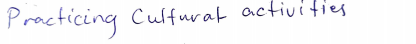 Practicing Cultural activities